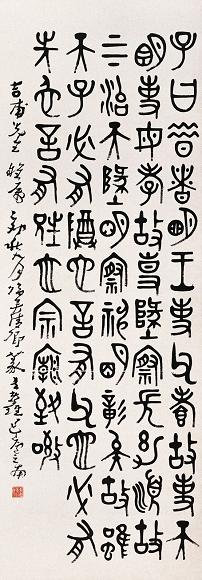 子曰昔者明王事父孝故事天
明事母孝故事地察長幼順故
上下治天地明察神明彰矣故雖
天子必有尊也言有父也必有
先也言有兄也宗廟致敬
吉甫先生